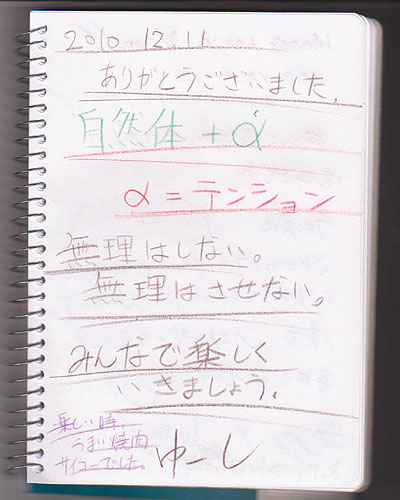 2010.12.11
ありがとうございました。
自然体+α
α=テンション
無理はしない。
無理はさせない。
みんなで楽しく
いきましょう。
楽しい時、
うまい焼肉
サイコーでした。
ゆーし